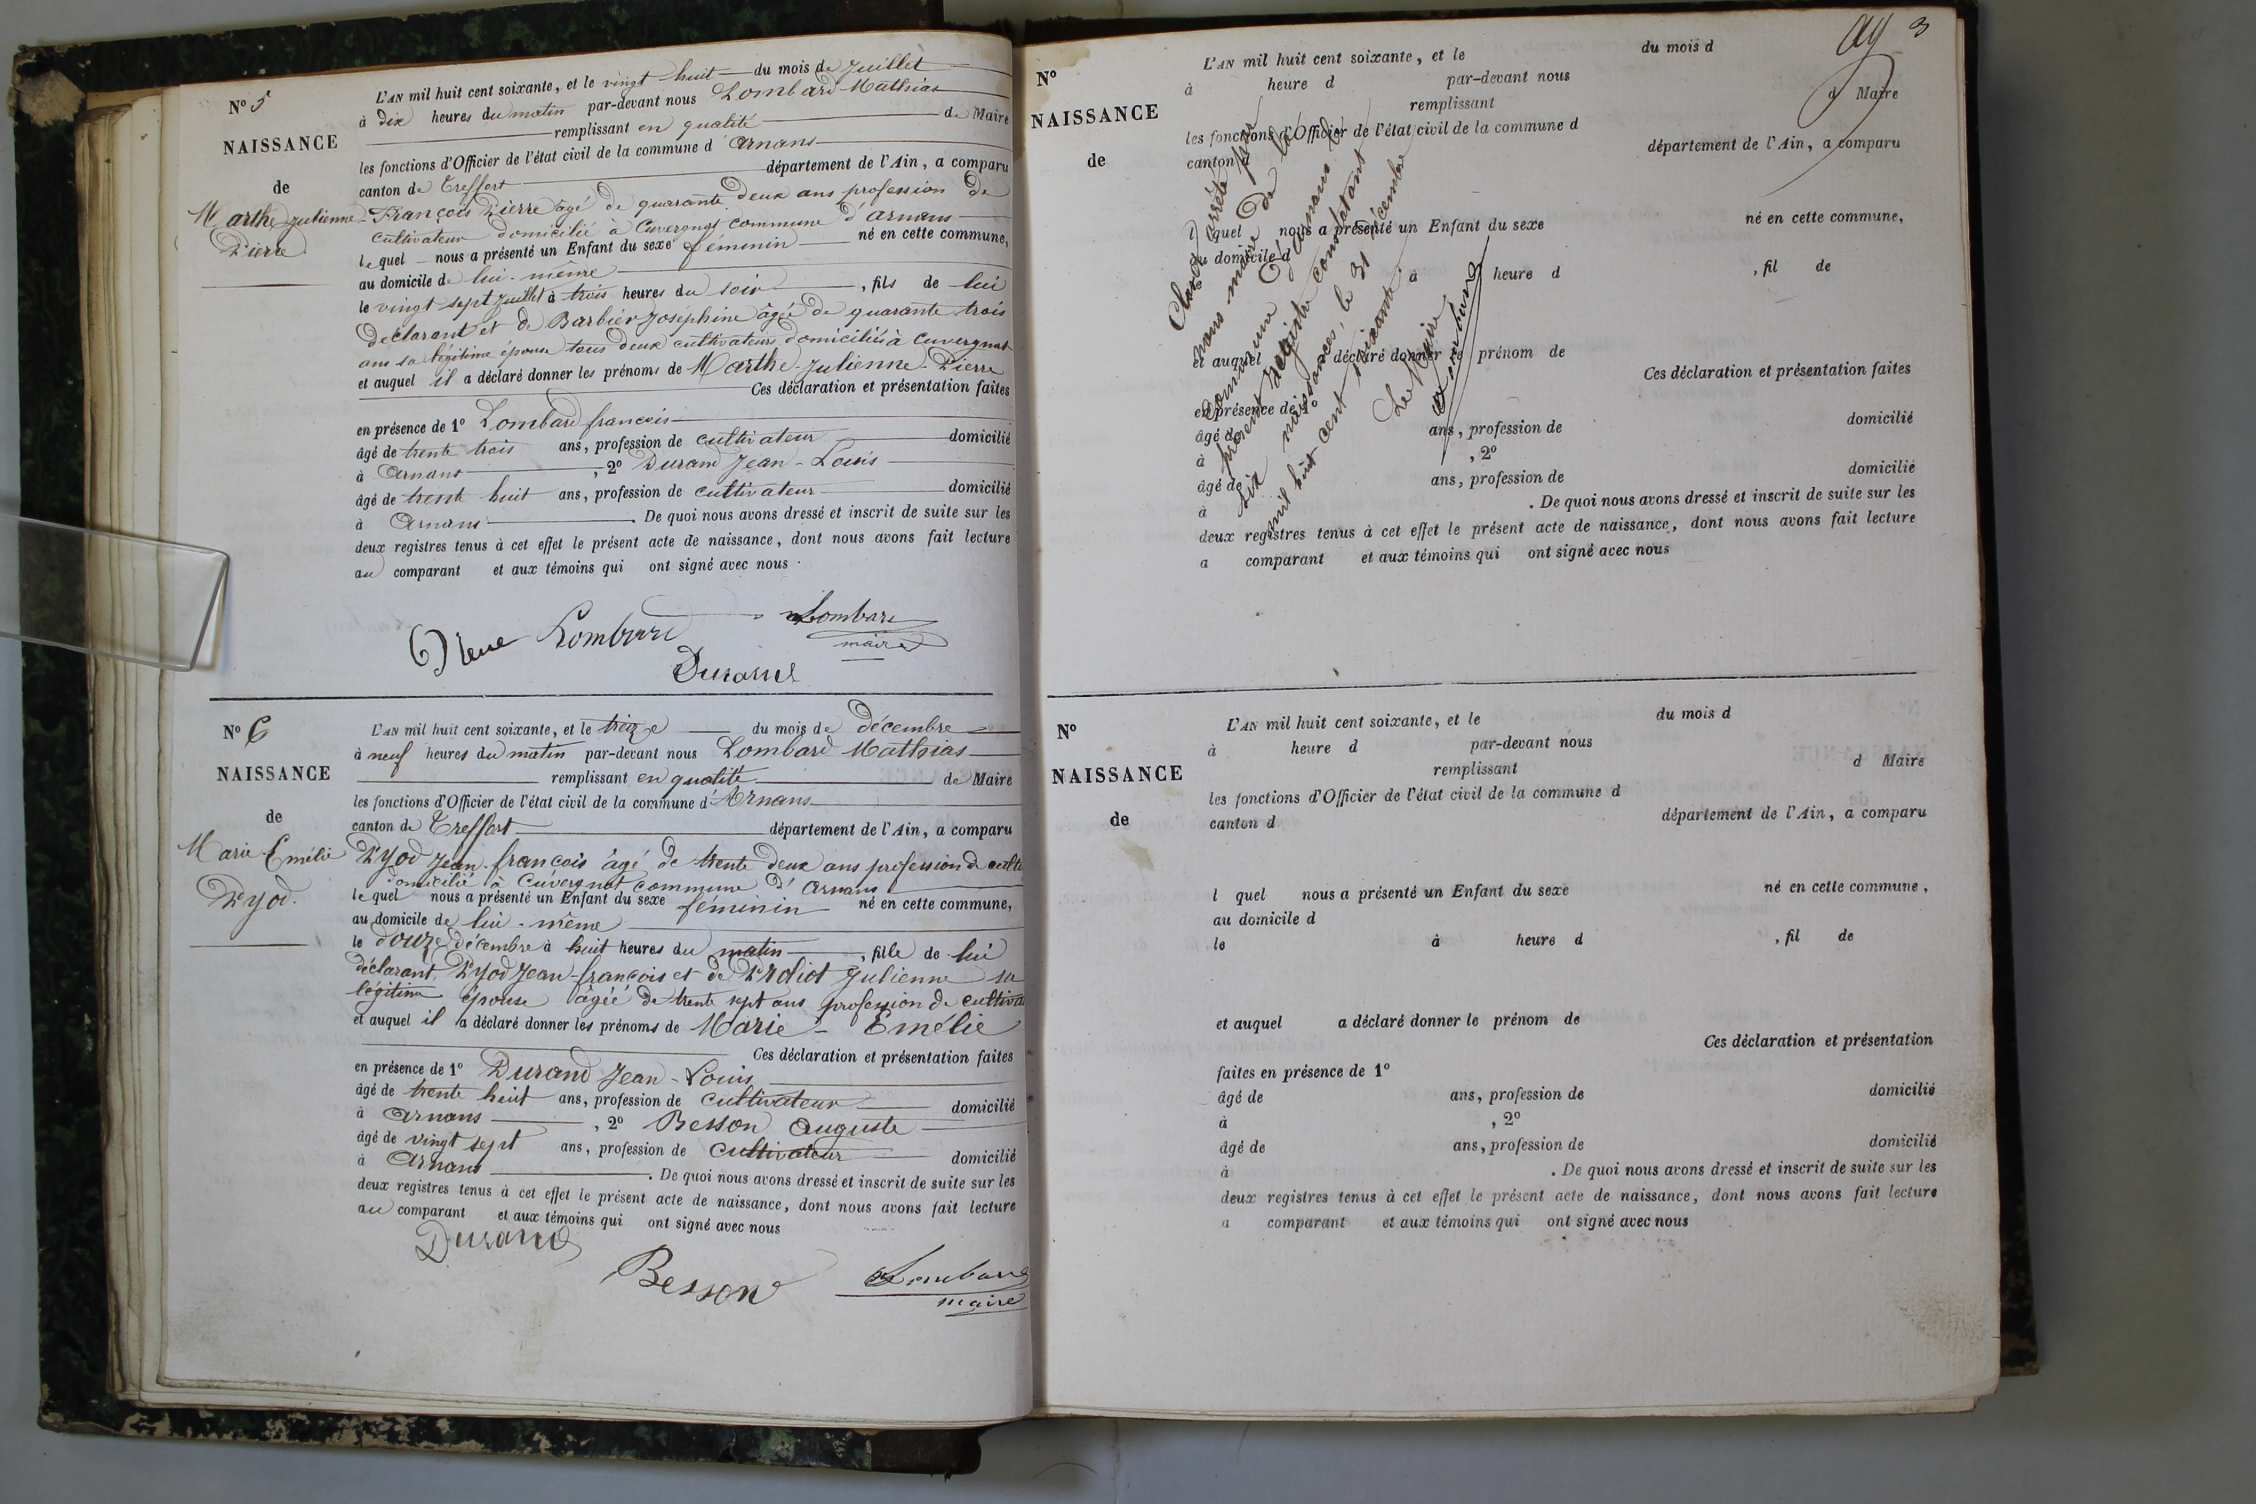 N° 5
NAISSANCE
de
Marthe Julienne
Pierre
L'AN mil huit cent soixante, et le vingt huit du mois de Juillet
à dix heures du matin par-devant nous Lombard Mathias
remplissant en qualité de Maire
les fonctions d'Officier de l'état civil de la commune d'Arnans
canton de Treffort département de l'Ain, a comparu
François Pierre âgé de quarante deux ans profession de
cultivateur domicilié à Cuvergnat commune d'Arnans
lequel nous a présenté un Enfant du sexe féminin né en cette commune,
au domicile de lui-même
le vingt sept juillet à trois heures du soir, fils de lui
déclarant et de Barbier Josephine âgée de quarante trois
ans sa légitime épouse tous deux cultivateurs domiciliés à Cuvergnat
et auquel il a déclaré donner les prénoms de Marthe-Julienne Pierre
Ces déclaration et présentation faites
en présence de 1° Lombard françois
âgé de trente trois ans, profession de cultivateur domicilié
à Arnans, 2° Durand Jean-Louis
âgé de trente huit ans, profession de cultivateur domicilié
à Arnans. De quoi nous avons dressé et inscrit de suite sur les
deux registres tenus à cet effet le présent acte de naissance, dont nous avons fait lecture
au comparant et aux témoins qui ont signé avec nous.
Pierre Lombard Lombard
maire
Durand
N° 6
NAISSANCE
de
Marie Emélie
Pyod.
L'AN mil huit cent soixante, et le treize du mois de décembre
à neuf heures du matin par-devant nous Lombard Mathias
remplissant en qualité de Maire
les fonctions d'Officier de l'état civil de la commune d'Arnans
canton de Treffort département de l'Ain, a comparu
Pyod Jean-françois âgé de trente deux ans profession de culti
domicilié à Cuvergnat commune d'Arnans
lequel nous a présenté un Enfant du sexe féminin né en cette commune,
au domicile de lui-même
le douze décembre à huit heures du matin, fille de lui
déclarant Pyod Jean-françois et de Julienne sa
légitime épouse âgée de trente sept ans profession de cultiva
et auquel il a déclaré donner les prénoms de Marie-Emélie
Ces déclaration et présentation faites
en présence de 1° Durand Jean-Louis
âgé de trente huit ans, profession de cultivateur domicilié
à Arnans, 2° Besson Auguste
âgé de vingt sept ans, profession de cultivateur domicilié
à Arnans. De quoi nous avons dressé et inscrit de suite sur les
deux registres tenus à cet effet le présent acte de naissance, dont nous avons fait lecture
au comparant et aux témoins qui ont signé avec nous
Durand
Besson Lombard
maire
3
N°
NAISSANCE
de
L'AN mil huit cent soixante, et le du mois d
à heure d par-devant nous
remplissant d Maire
les fonctions d'Officier de l'état civil de la commune d
canton d département de l'Ain, a comparu
l quel nous a présenté un Enfant du sexe né en cette commune,
au domicile d
à heure d , fil de
et auquel déclaré donner le prénom de
Ces déclaration et présentation faites
en présence de 1°
âgé de ans, profession de domicilié
à , 2°
âgé de ans, profession de domicilié
à . De quoi nous avons dressé et inscrit de suite sur les
deux registres tenus à cet effet le présent acte de naissance, dont nous avons fait lecture
a comparant et aux témoins qui ont signé avec nous
Clos et Arrêté par
nous maire de la
commune d'Arnans le
présent registre constatant
six naissances, le 31 décembre
mil huit cent soixante.
Le Maire
Lombard
N°
NAISSANCE
de
L'AN mil huit cent soixante, et le du mois d
à heure d par-devant nous
remplissant d Maire
les fonctions d'Officier de l'état civil de la commune d
canton d département de l'Ain, a comparu
l quel nous a présenté un Enfant du sexe né en cette commune,
au domicile d
le à heure d , fil de
et auquel a déclaré donner le prénom de
Ces déclaration et présentation
faites en présence de 1°
âgé de ans, profession de domicilié
à , 2°
âgé de ans, profession de domicilié
à . De quoi nous avons dressé et inscrit de suite sur les
deux registres tenus à cet effet le présent acte de naissance, dont nous avons fait lecture
a comparant et aux témoins qui ont signé avec nous